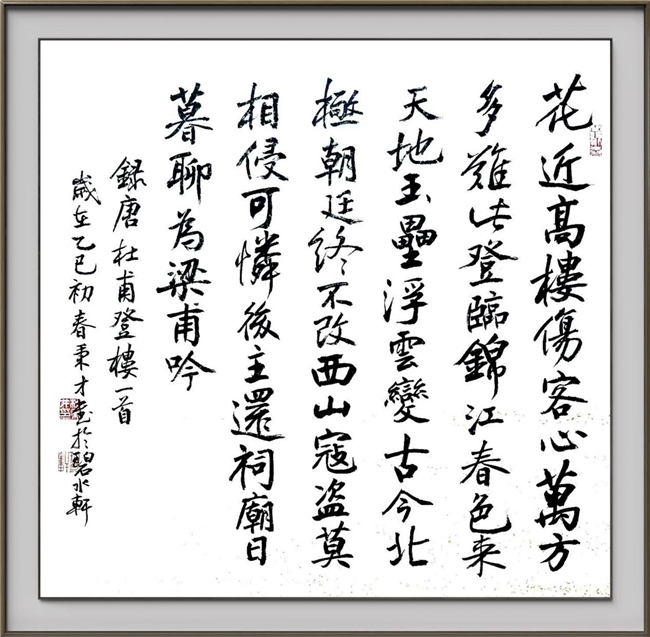 花近高樓傷客心萬方
多難此登臨錦江春色来
天地玉壘浮雲變古今北
極朝廷終不改西山寇盗莫
相侵可憐後主還祠廟日
暮聊為梁甫吟
録唐杜甫登樓一首
歲在乙巳初春秉才書於碧水軒